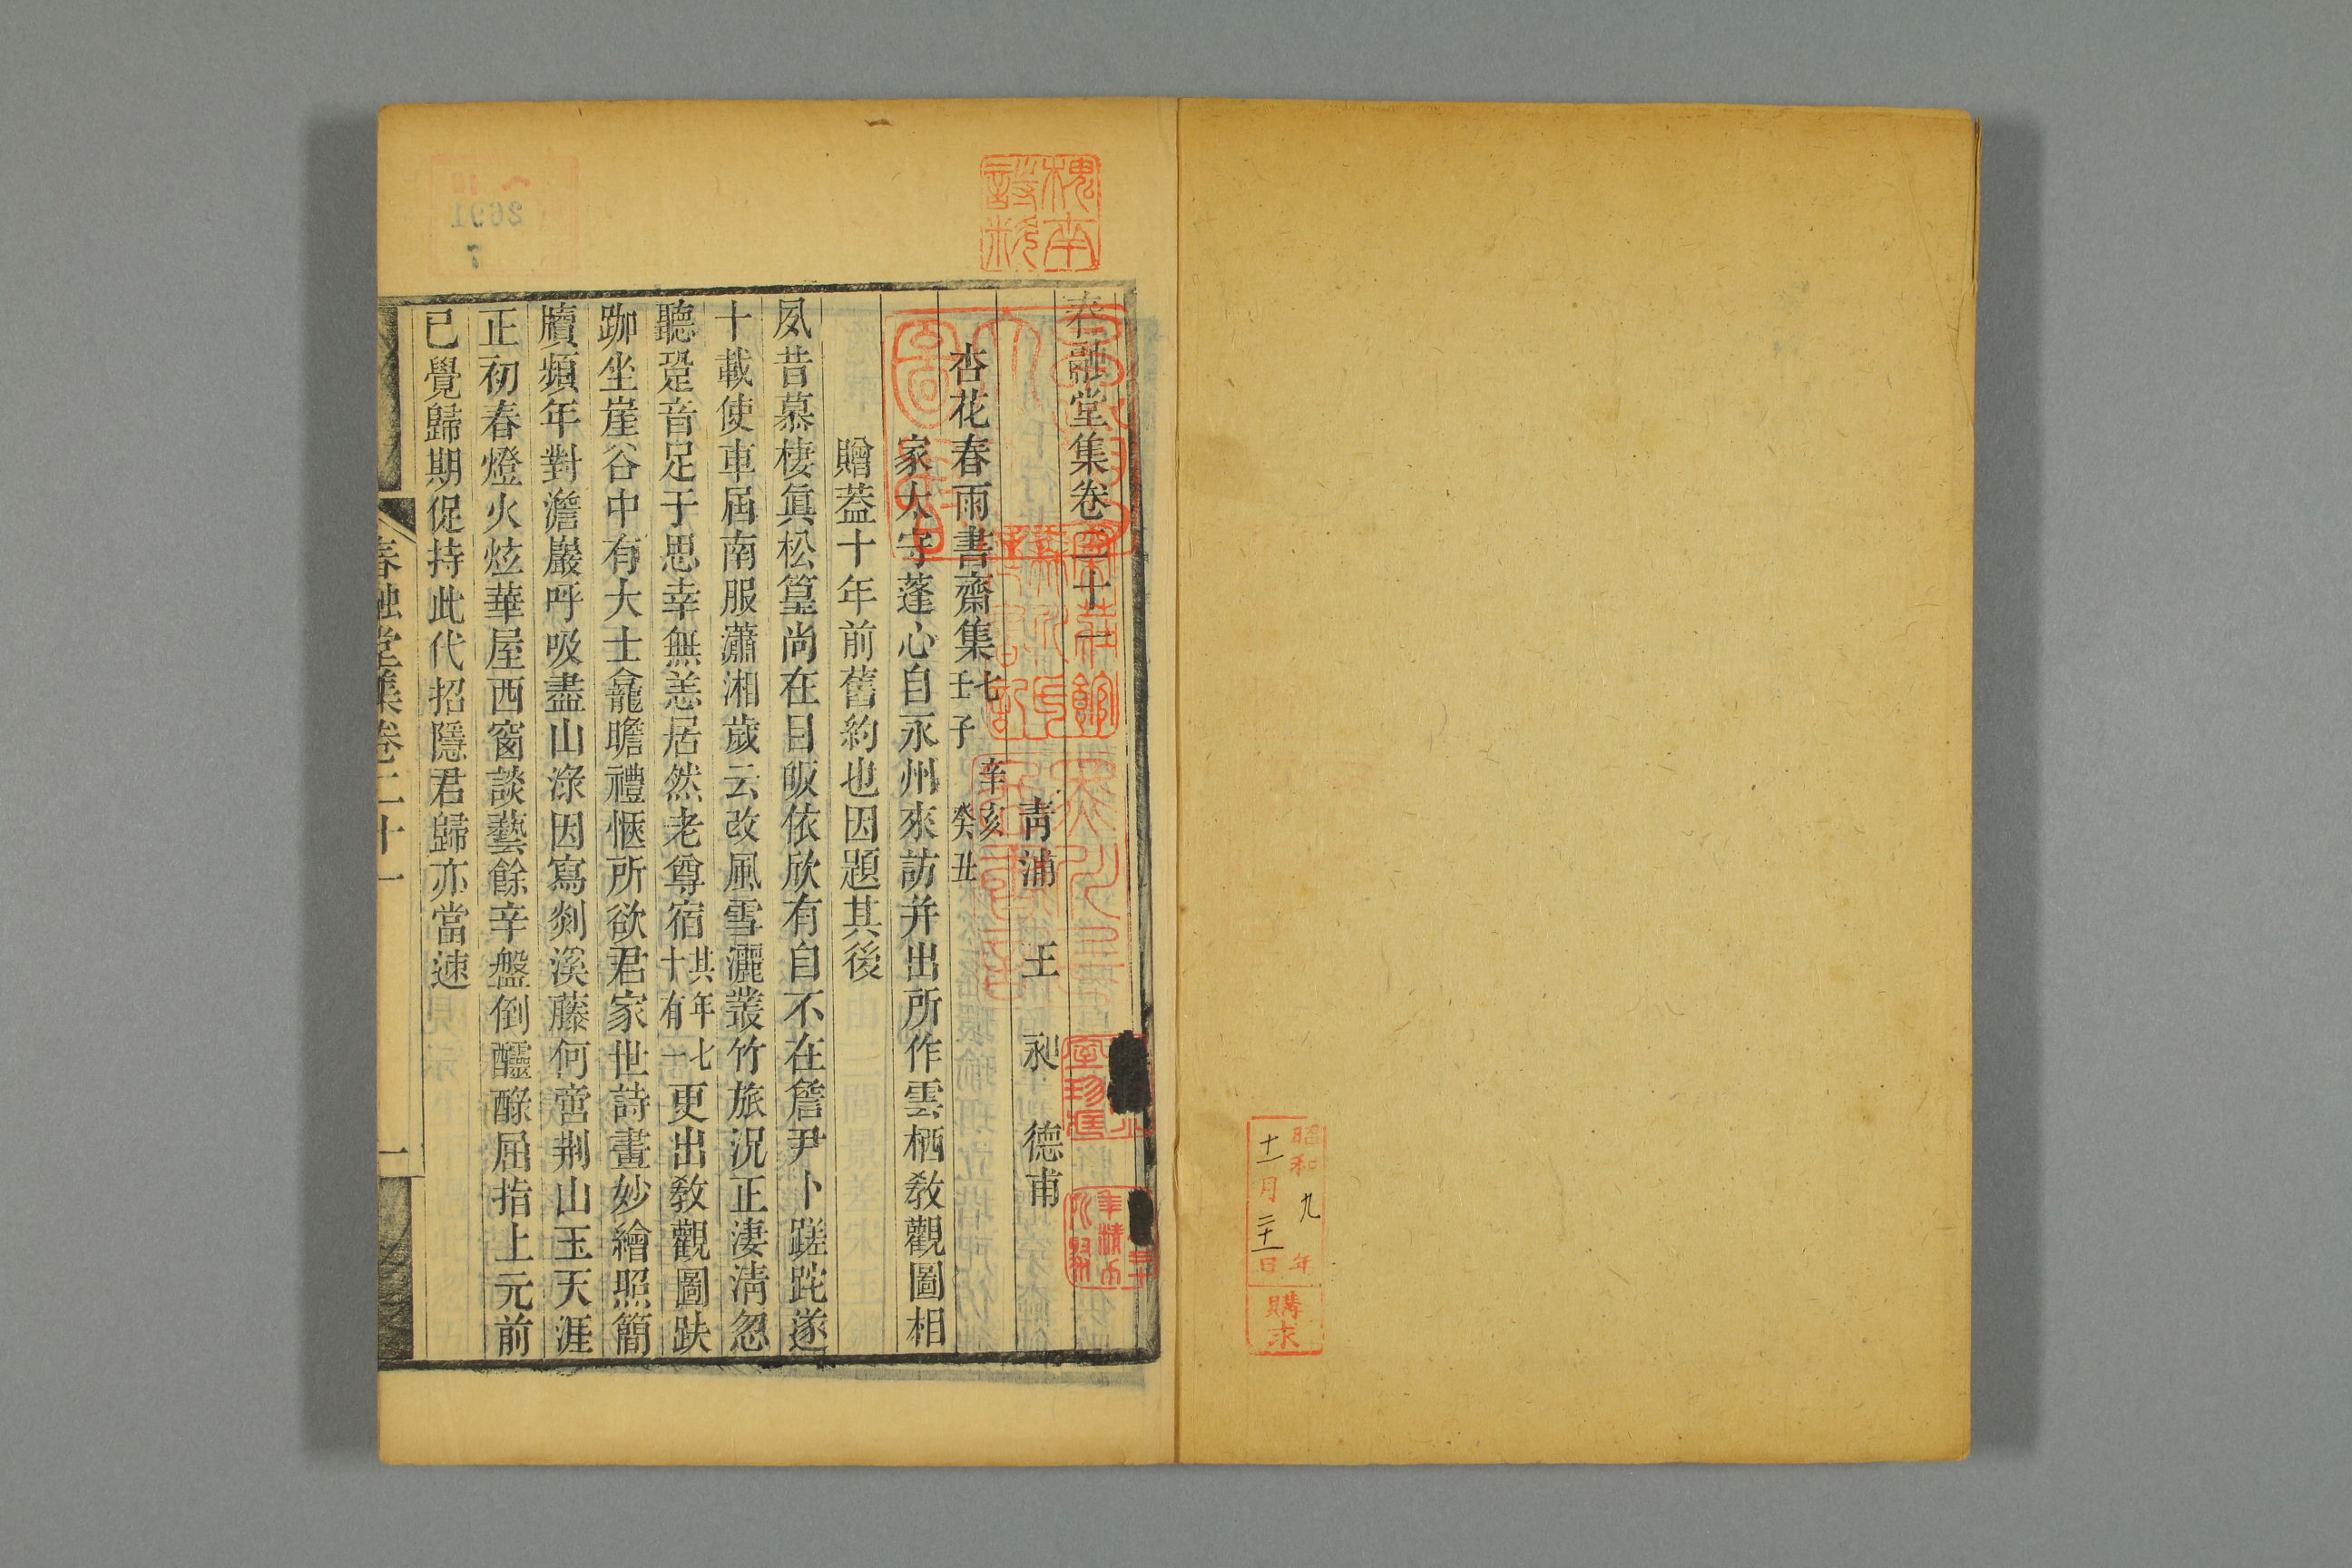 昭和九年
十一月二十一日
購求
槐南詩料
春融堂集卷二十一
青浦 王 昶 德甫
杏花春雨書齋集七 辛亥 壬子 癸丑
家太守蓬心自永州來訪并出所作雲栖敎觀圖相
贈葢十年前舊約也因題其後
夙昔慕棲眞松篁尚在目皈依欣有自不在詹尹卜蹉跎遂
十載使車屆南服瀟湘歲云改風雪灑叢竹旅況正淒淸忽
聽跫音足于思幸無恙居然老尊宿其年七十有一更出敎觀圖趺
跏坐崖谷中有大士龕瞻禮愜所欲君家世詩畫妙繪照簡
牘頻年對澹巖呼吸盡山淥因寫剡溪藤何啻荆山玉天涯
正初春燈火炫華屋西窗談藝餘辛盤倒醽醁屈指上元前
已覺歸期促持此代招隱君歸亦當速
春融堂集卷二十一
一